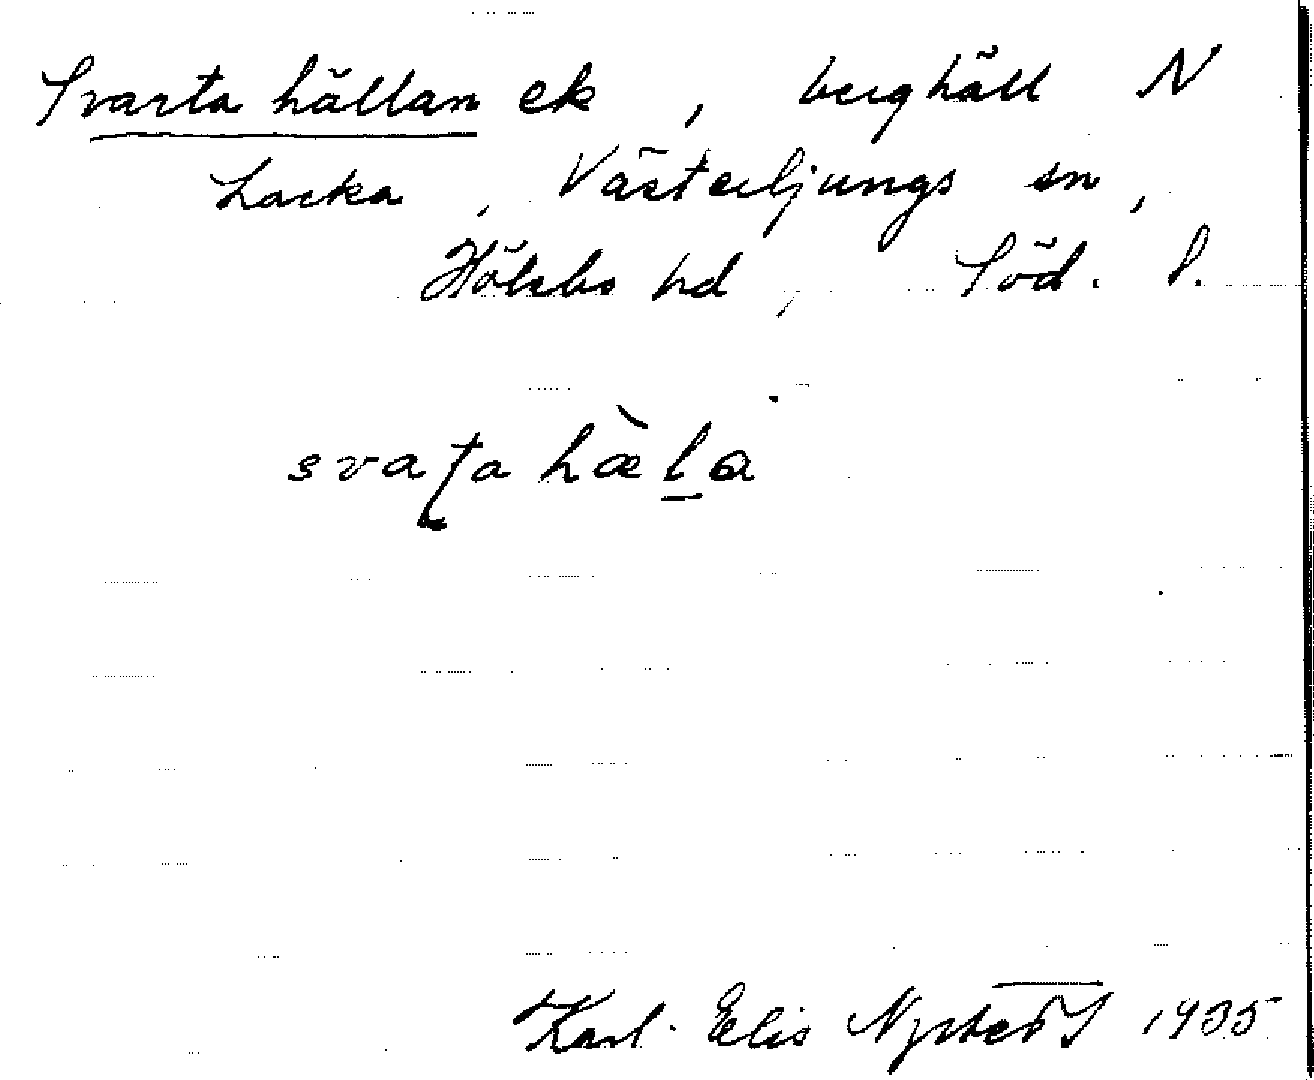 Svarta hällan ek, berghäll N
Lacka, Västerljungs sn,
Hölebo hd, Söd. l.
svaṭa hæ̀l̠a
Karl-Elis 1935